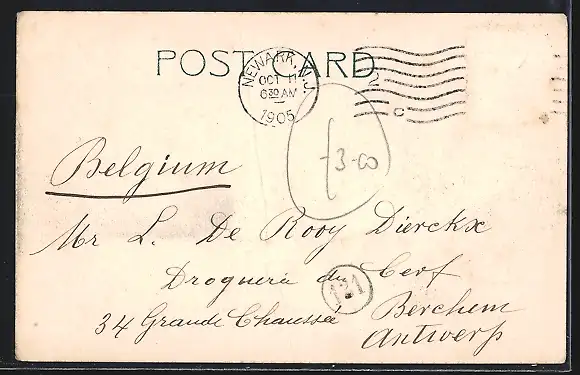 POST CARD
NEWARK, N.J.
OCT 11
630 AM
1905
2
C
f3-00
Belgium
Mr L. De Rooy Dierckx
Droguerie du Cerf
121
34 Grande Chaussée Berchem
Antwerp